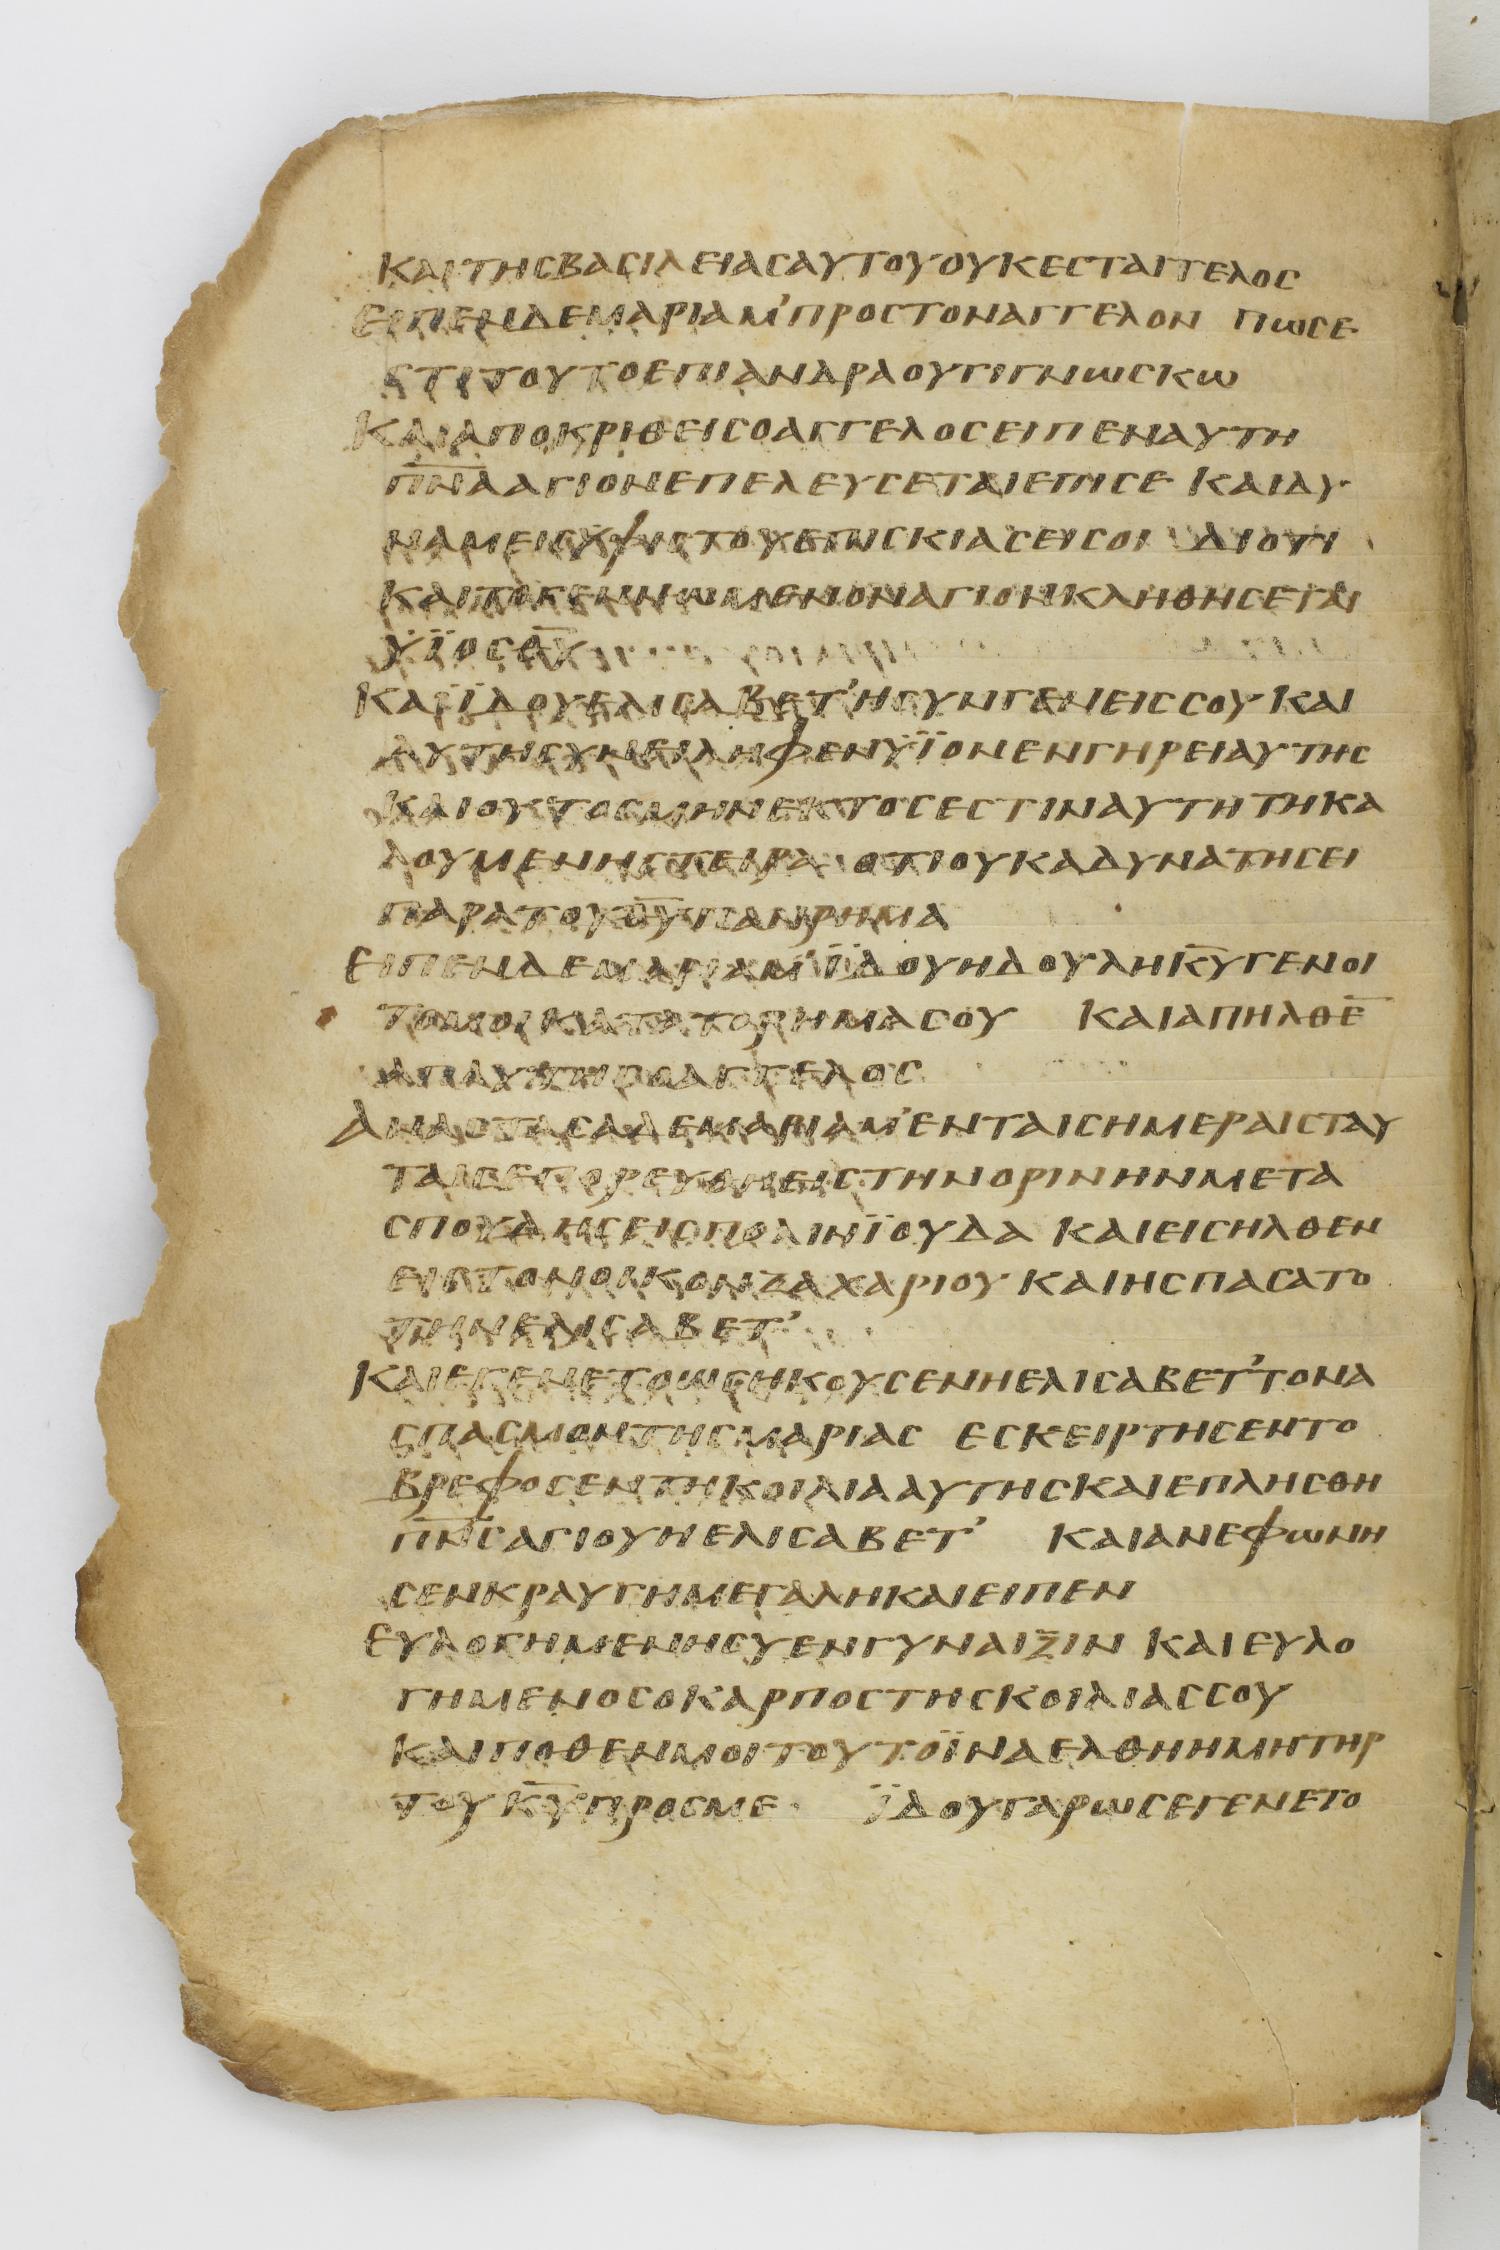 ΚΑΙΤΗΣΒΑΣΙΛΕΙΑΣΑΥΤΟΥΟΥΚΕΣΤΑΙΤΕΛΟΣ
ΕΙΠΕΝΔΕΜΑΡΙΑΜ'ΠΡΟΣΤΟΝΑΓΓΕΛΟΝ ΠΩΣΕ
ΣΤΙΤΟΥΤΟΕΠΙΑΝΔΡΑΟΥΓΙΓΝΩΣΚΩ
ΚΑΙΑΠΟΚΡΙΘΕΙΣΟΑΓΓΕΛΟΣΕΙΠΕΝΑΥΤΗ
Π̅Ν̅Α̅ΑΓΙΟΝΕΠΕΛΕΥΣΕΤΑΙΕΠΙΣΕ ΚΑΙΔΥ
ΝΑΜΕΙΣΥΨΙΣΤΟΥΕΠΙΣΚΙΑΣΕΙΣΟΙ ΔΙΟΥΝ
ΚΑΙΤΟΓΕΝΝΩΜΕΝΟΝΑΓΙΟΝΚΛΗΘΗΣΕΤΑΙ
ΫΪΟΣΘ̅Υ̅
ΚΑΙΪΔΟΥΕΛΙΣΑΒΕΤ'ΗΣΥΝΓΕΝΕΙΣΣΟΥΚΑΙ
ΑΥΤΗΣΥΝΕΙΛΗΦΕΝΫΪΟΝΕΝΓΗΡΕΙΑΥΤΗΣ
ΚΑΙΟΥΤΟΣΜΗΝΕΚΤΟΣΕΣΤΙΝΑΥΤΗΤΗΚΑ
ΛΟΥΜΕΝΗΣΤΕΙΡΑ ΟΤΙΟΥΚΑΔΥΝΑΤΗΣΕΙ
ΠΑΡΑΤΟΥΘ̅Υ̅ΠΑΝΡΗΜΑ
ΕΙΠΕΝΔΕΜΑΡΙΑΜ'ΪΔΟΥΗΔΟΥΛΗΚ̅Υ̅ΓΕΝΟΙ
ΤΟΜΟΙΚΑΤΑΤΟΡΗΜΑΣΟΥ ΚΑΙΑΠΗΛΘΕ̅
ΑΠΑΥΤΗΣΟΑΓΓΕΛΟΣ
ΑΝΑΣΤΑΣΑΔΕΜΑΡΙΑΜ'ΕΝΤΑΙΣΗΜΕΡΑΙΣΤΑΥ
ΤΑΙΣΕΠΟΡΕΥΘΗΕΙΣΤΗΝΟΡΙΝΗΝΜΕΤΑ
ΣΠΟΥΔΗΣΕΙΣΠΟΛΙΝΪΟΥΔΑ ΚΑΙΕΙΣΗΛΘΕΝ
ΕΙΣΤΟΝΟΙΚΟΝΖΑΧΑΡΙΟΥΚΑΙΗΣΠΑΣΑΤΟ
ΤΗΝΕΛΙΣΑΒΕΤ'
ΚΑΙΕΓΕΝΕΤΟΩΣΗΚΟΥΣΕΝΗΕΛΙΣΑΒΕΤ'ΤΟΝΑ
ΣΠΑΣΜΟΝΤΗΣΜΑΡΙΑΣ ΕΣΚΕΙΡΤΗΣΕΝΤΟ
ΒΡΕΦΟΣΕΝΤΗΚΟΙΛΙΑΑΥΤΗΣΚΑΙΕΠΛΗΣΘΗ
Π̅Ν̅Σ̅ΑΓΙΟΥΗΕΛΙΣΑΒΕΤ' ΚΑΙΑΝΕΦΩΝΗ
ΣΕΝΚΡΑΥΓΗΜΕΓΑΛΗΚΑΙΕΙΠΕΝ
ΕΥΛΟΓΗΜΕΝΗΣΥΕΝΓΥΝΑΙΞΙΝ ΚΑΙΕΥΛΟ
ΓΗΜΕΝΟΣΟΚΑΡΠΟΣΤΗΣΚΟΙΛΙΑΣΣΟΥ
ΚΑΙΠΟΘΕΝΜΟΙΤΟΥΤΟΪΝΑΕΛΘΗΗΜΗΤΗΡ
ΤΟΥΚ̅Υ̅ΠΡΟΣΜΕ ΪΔΟΥΓΑΡΩΣΕΓΕΝΕΤΟ